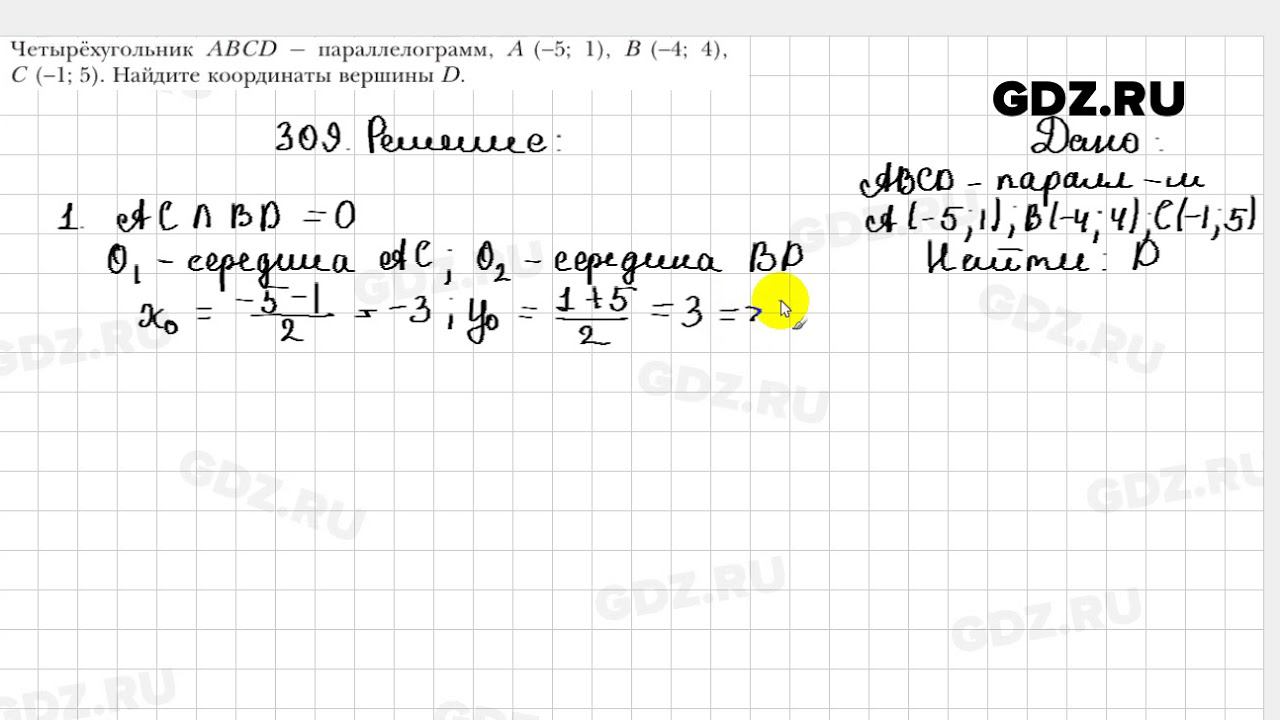 Четырёхугольник ABCD – параллелограмм, A (–5; 1), B (–4; 4),
C (–1; 5). Найдите координаты вершины D.
GDZ.RU
309. Решение:
Дано:
ABCD – паралл-м
A(-5;1); B(-4;4); C(-1;5)
Найти: D
1. AC ∩ BD = O
O₁ - середина AC; O₂ - середина BD
x₀ = (-5-1)/2 = -3; y₀ = (1+5)/2 = 3 =>
GDZ.RU
GDZ.RU
GDZ.RU
GDZ.RU
GDZ.RU
GDZ.RU
GDZ.RU
GDZ.RU
GDZ.RU
GDZ.RU
GDZ.RU